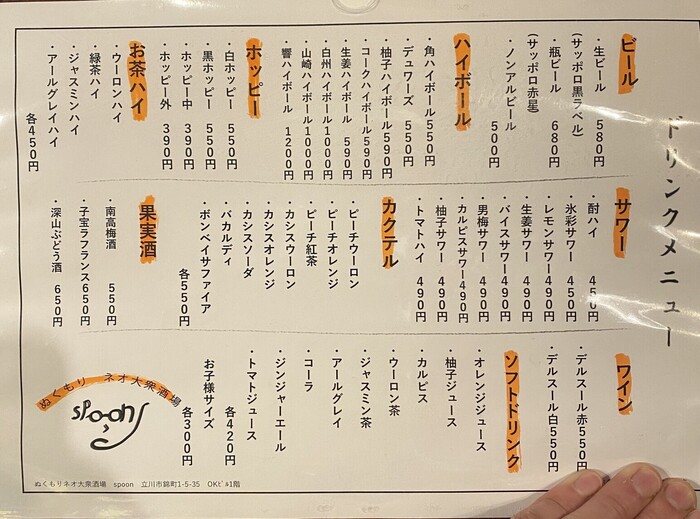 ドリンクメニュー
ビール
・生ビール 580円
(サッポロ黒ラベル)
・瓶ビール 680円
(サッポロ赤星)
・ノンアルビール 500円
ハイボール
・角ハイボール 550円
・デュワーズ 550円
・柚子ハイボール 590円
・コークハイボール 590円
・生姜ハイボール 590円
・白州ハイボール 1000円
・山崎ハイボール 1000円
・響ハイボール 1200円
ホッピー
・白ホッピー 550円
・黒ホッピー 550円
・ホッピー中 390円
・ホッピー外 390円
お茶ハイ
・ウーロンハイ
・緑茶ハイ
・ジャスミンハイ
・アールグレイハイ
各450円
サワー
・酎ハイ 450円
・氷彩サワー 450円
・レモンサワー 490円
・生姜サワー 490円
・バイスサワー 490円
・男梅サワー 490円
・カルピスサワー 490円
・柚子サワー 490円
・トマトハイ 490円
カクテル
・ピーチウーロン
・ピーチオレンジ
・ピーチ紅茶
・カシスウーロン
・カシスオレンジ
・カシスソーダ
・バカルディ
・ボンベイサファイア
各550円
果実酒
・南高梅酒 550円
・子宝ラフランス 650円
・深山ぶどう酒 650円
ワイン
・デルスール赤 550円
・デルスール白 550円
ソフトドリンク
・オレンジジュース
・柚子ジュース
・カルピス
・ウーロン茶
・ジャスミン茶
・アールグレイ
・コーラ
・ジンジャーエール
・トマトジュース
各420円
お子様サイズ
各300円
ぬくもり ネオ大衆酒場
spoon
ぬくもりネオ大衆酒場 spoon 立川市錦町1-5-35 OKビル1階